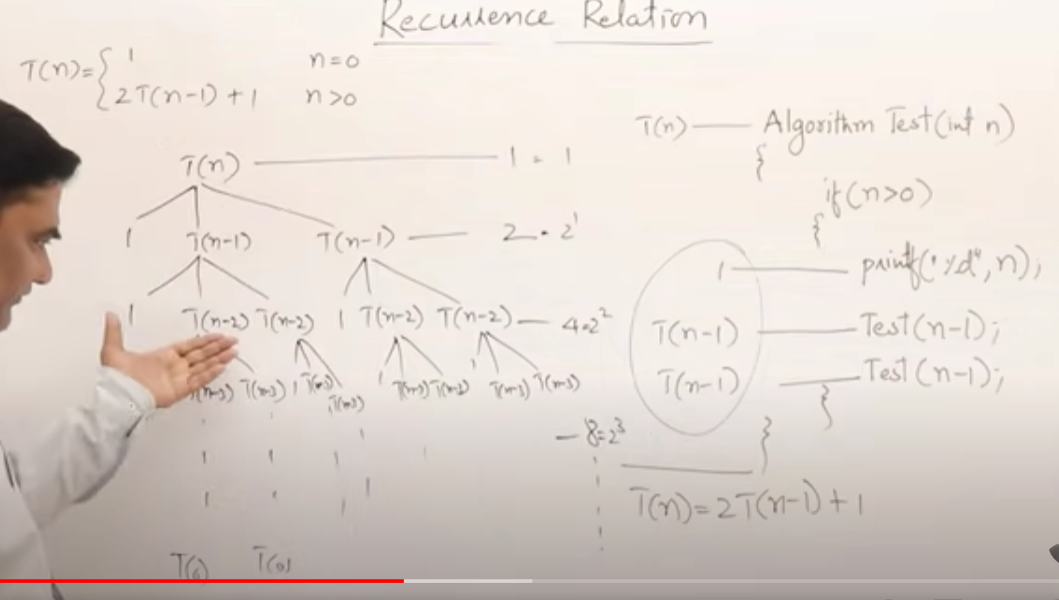 Recurrence Relation
T(n)= { 1 n=0
2T(n-1)+1 n>0
T(n) — 1 = 1
1 T(n-1) T(n-1) — 2 = 2¹
1 T(n-2) T(n-2) 1 T(n-2) T(n-2) — 4=2²
T(n-3) T(n-3) 1 T(n-3) T(n-3) 1 T(n-3) T(n-3) 1 T(n-3) T(n-3)
— 8=2³
T(0) T(0)
T(n) — Algorithm Test(int n)
{
if(n>0)
{
1 — printf("%d", n);
T(n-1) — Test(n-1);
T(n-1) — Test(n-1);
}
}
T(n)=2T(n-1)+1